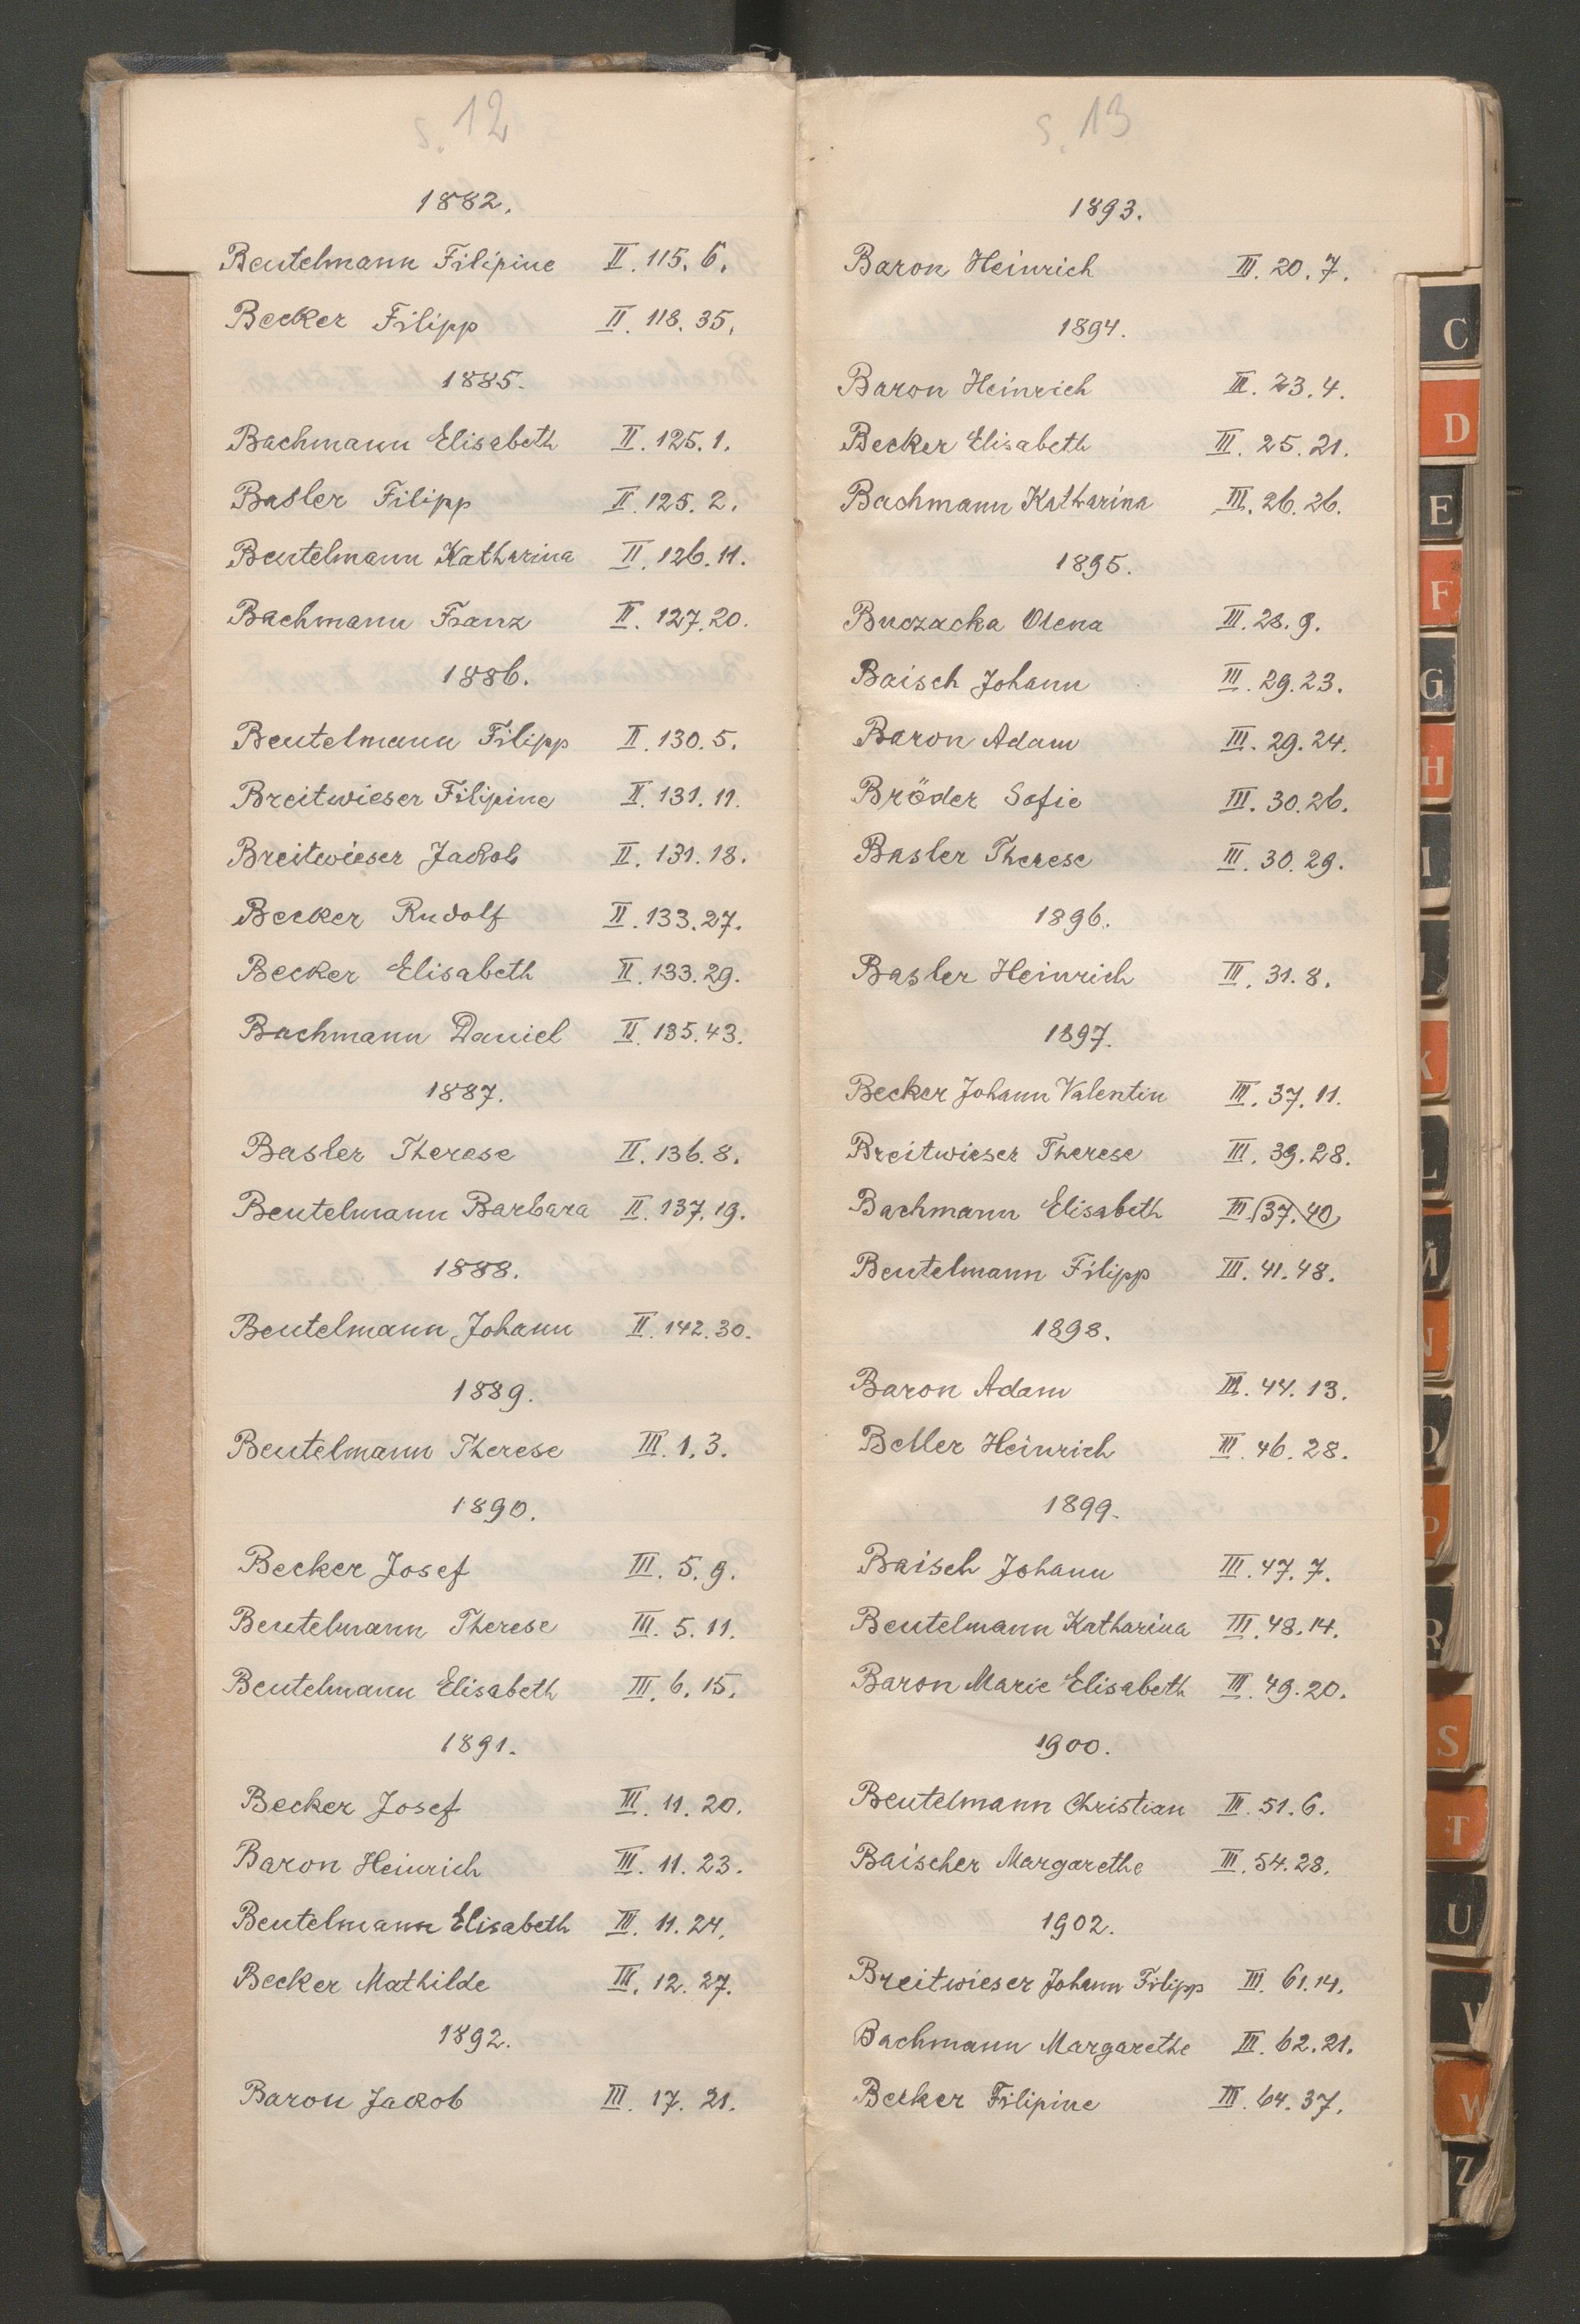 s. 12
1882.
Beutelmann Filipine II. 115. 6.
Becker Filipp II. 118. 35.
1885.
Bachmann Elisabeth II. 125. 1.
Basler Filipp II. 125. 2.
Beutelmann Katharina II. 126. 11.
Bachmann Franz II. 127. 20.
1886.
Beutelmann Filipp II. 130. 5.
Breitwieser Filipine II. 131. 11.
Breitwieser Jakob II. 131. 18.
Becker Rudolf II. 133. 27.
Becker Elisabeth II. 133. 29.
Bachmann Daniel II. 135. 43.
1887.
Basler Therese II. 136. 8.
Beutelmann Barbara II. 137. 19.
1888.
Beutelmann Johann II. 142. 30.
1889.
Beutelmann Therese III. 1. 3.
1890.
Becker Josef III. 5. 9.
Beutelmann Therese III. 5. 11.
Beutelmann Elisabeth III. 6. 15.
1891.
Becker Josef III. 11. 20.
Baron Heinrich III. 11. 23.
Beutelmann Elisabeth III. 11. 24.
Becker Mathilde III. 12. 27.
1892.
Baron Jakob III. 17. 21.
s. 13
1893.
Baron Heinrich III. 20. 7.
1894.
Baron Heinrich III. 23. 4.
Becker Elisabeth III. 25. 21.
Bachmann Katharina III. 26. 26.
1895.
Buczacka Olena III. 28. 9.
Baisch Johann III. 29. 23.
Baron Adam III. 29. 24.
Bröder Sofie III. 30. 26.
Basler Therese III. 30. 29.
1896.
Basler Heinrich III. 31. 8.
1897.
Becker Johann Valentin III. 37. 11.
Breitwieser Therese III. 39. 28.
Bachmann Elisabeth III. 37. 40.
Beutelmann Filipp III. 41. 48.
1898.
Baron Adam III. 44. 13.
Beller Heinrich III. 46. 28.
1899.
Baisch Johann III. 47. 7.
Beutelmann Katharina III. 48. 14.
Baron Marie Elisabeth III. 49. 20.
1900.
Beutelmann Christian III. 51. 6.
Baischer Margarethe III. 54. 28.
1902.
Breitwieser Johann Filipp III. 61. 14.
Bachmann Margarethe III. 62. 21.
Becker Filipine III. 64. 37.
C
D
E
F
G
H
I
K
L
M
N
O
P
R
S
T
U
V
W
Z